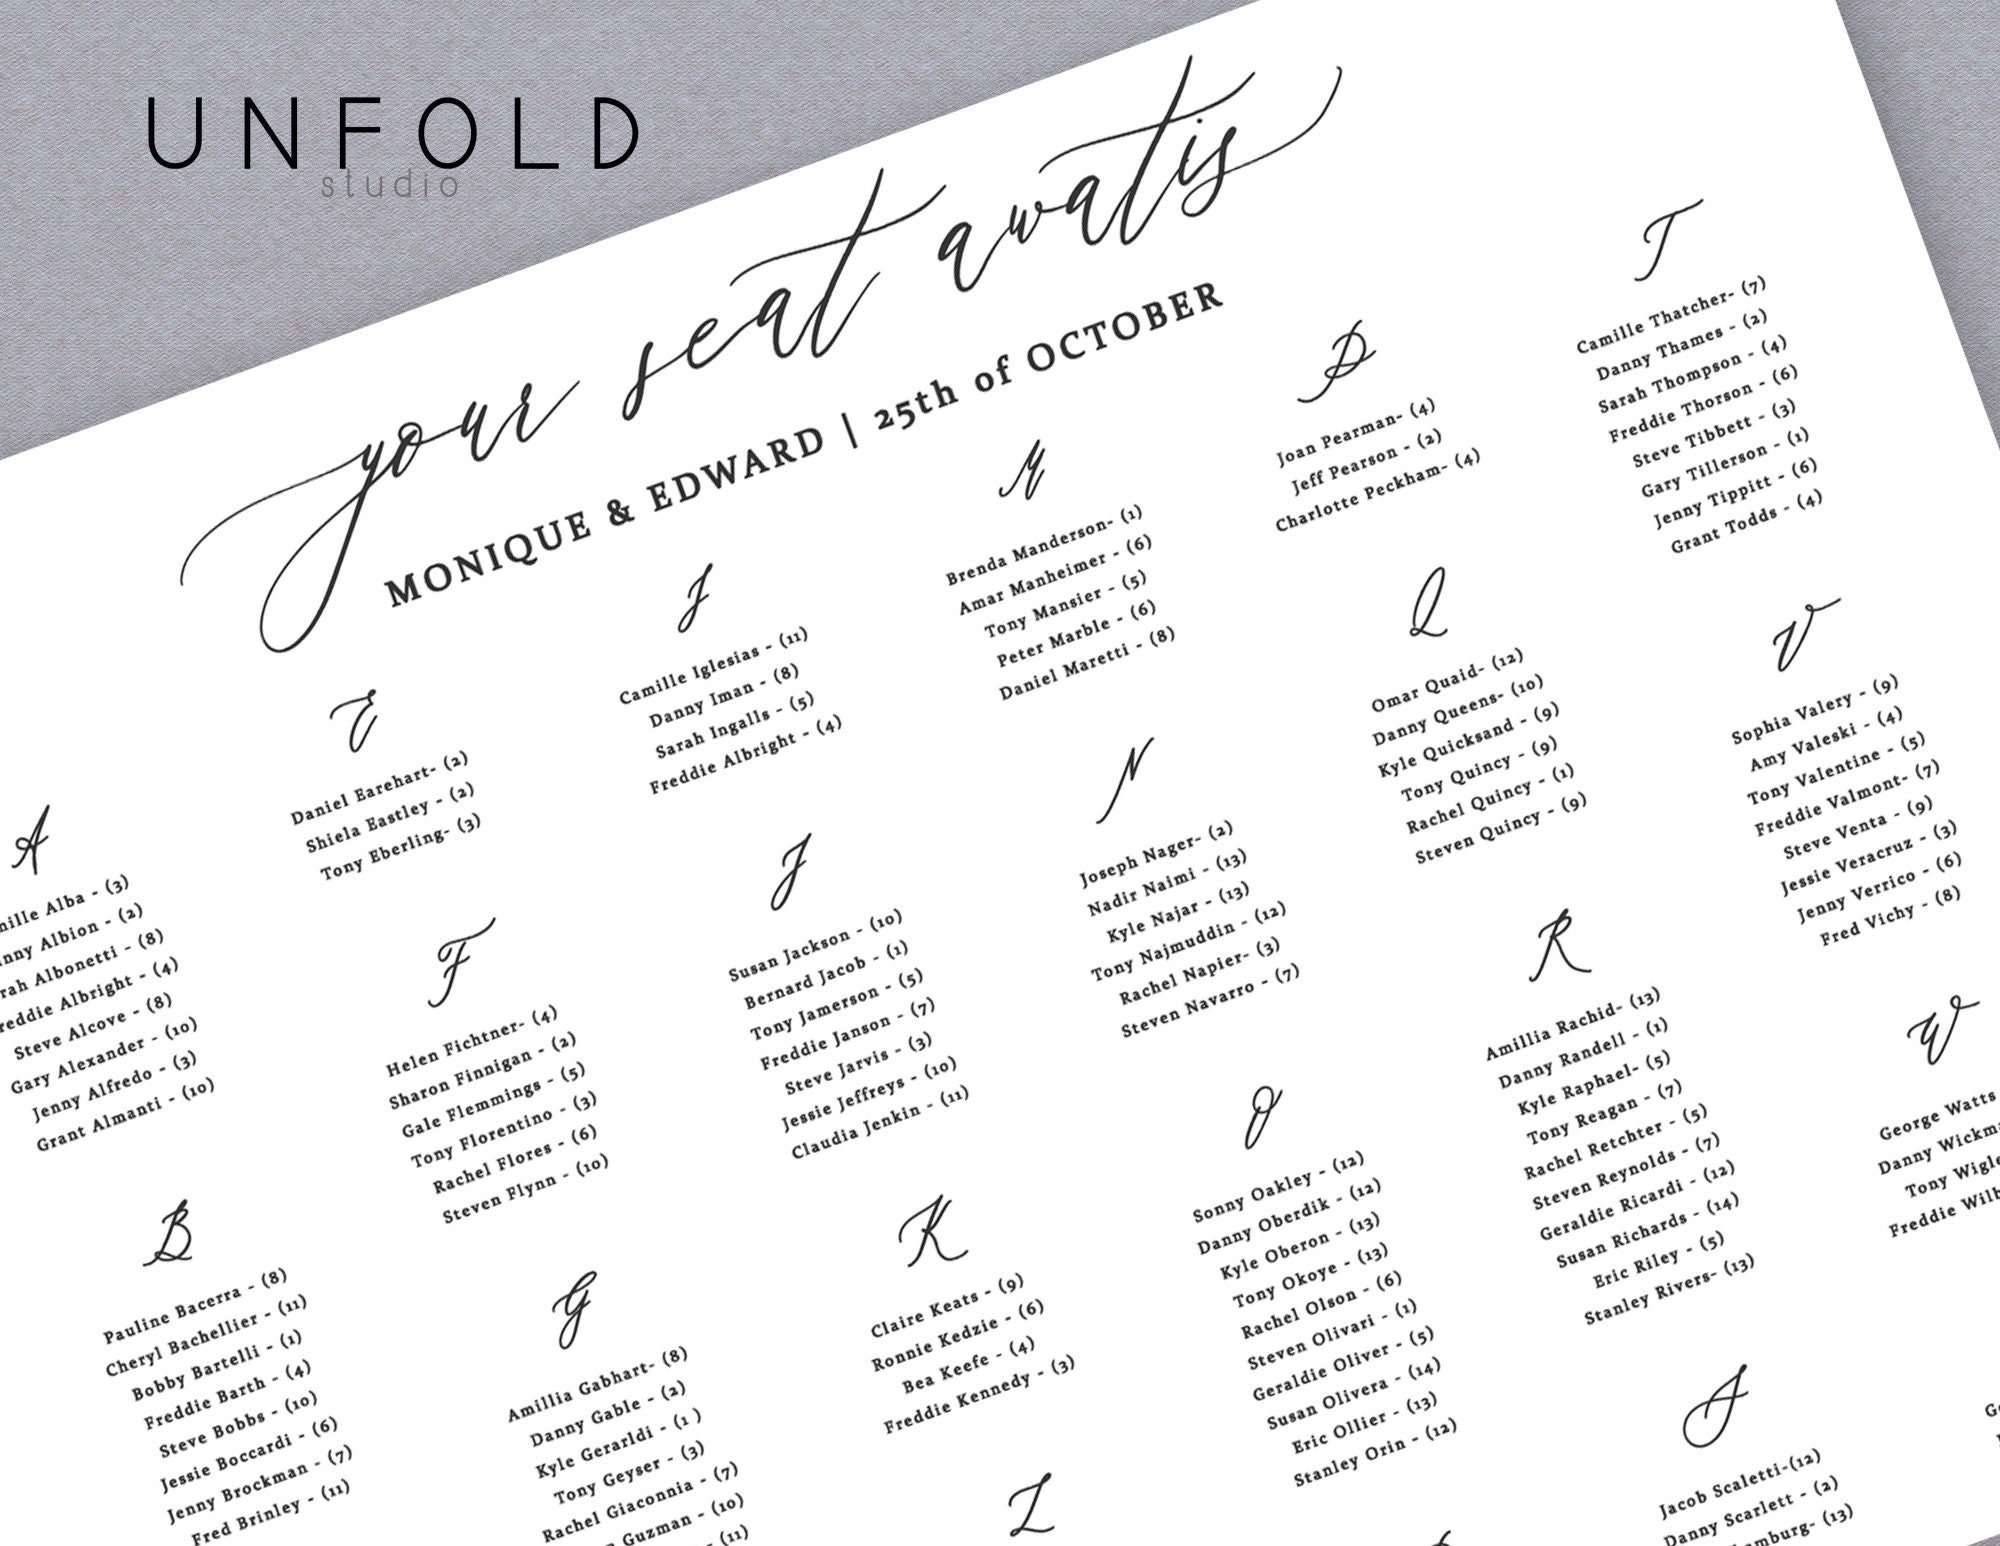 UNFOLD
studio
your seat awatis
MONIQUE & EDWARD | 25th of OCTOBER
A
Alba - (3)
Albion - (2)
Albonetti - (8)
Albright - (4)
Steve Alcove - (8)
Gary Alexander - (10)
Jenny Alfredo - (3)
Grant Almanti - (10)
B
Pauline Bacerra - (8)
Cheryl Bachellier - (11)
Bobby Bartelli - (1)
Freddie Barth - (4)
Steve Bobbs - (10)
Jessie Boccardi - (6)
Jenny Brockman - (7)
Fred Brinley - (11)
E
Daniel Earehart- (2)
Shiela Eastley - (2)
Tony Eberling- (3)
F
Helen Fichtner- (4)
Sharon Finnigan - (2)
Gale Flemmings - (5)
Tony Florentino - (3)
Rachel Flores - (6)
Steven Flynn - (10)
G
Amillia Gabhart- (8)
Danny Gable - (2)
Kyle Gerarldi - (1 )
Tony Geyser - (3)
Rachel Giaconnia - (7)
Guzman - (10)
- (11)
I
Camille Iglesias - (11)
Danny Iman - (8)
Sarah Ingalls - (5)
Freddie Albright - (4)
J
Susan Jackson - (10)
Bernard Jacob - (1)
Tony Jamerson - (5)
Freddie Janson - (7)
Steve Jarvis - (3)
Jessie Jeffreys - (10)
Claudia Jenkin - (11)
K
Claire Keats - (9)
Ronnie Kedzie - (6)
Bea Keefe - (4)
Freddie Kennedy - (3)
L
M
Brenda Manderson- (1)
Amar Manheimer - (6)
Tony Mansier - (5)
Peter Marble - (6)
Daniel Maretti - (8)
N
Joseph Nager- (2)
Nadir Naimi - (13)
Kyle Najar - (13)
Tony Najmuddin - (12)
Rachel Napier- (3)
Steven Navarro - (7)
O
Sonny Oakley - (12)
Danny Oberdik - (12)
Kyle Oberon - (13)
Tony Okoye - (13)
Rachel Olson - (6)
Steven Olivari - (1)
Geraldie Oliver - (5)
Susan Olivera - (14)
Eric Ollier - (13)
Stanley Orin - (12)
P
Joan Pearman- (4)
Jeff Pearson - (2)
Charlotte Peckham- (4)
Q
Omar Quaid- (12)
Danny Queens- (10)
Kyle Quicksand - (9)
Tony Quincy - (9)
Rachel Quincy - (1)
Steven Quincy - (9)
R
Amillia Rachid- (13)
Danny Randell - (1)
Kyle Raphael- (5)
Tony Reagan - (7)
Rachel Retchter - (5)
Steven Reynolds - (7)
Geraldie Ricardi - (12)
Susan Richards - (14)
Eric Riley - (5)
Stanley Rivers- (13)
S
Jacob Scaletti-(12)
Danny Scarlett - (2)
(13)
T
Camille Thatcher- (7)
Danny Thames - (2)
Sarah Thompson - (4)
Freddie Thorson - (6)
Steve Tibbett - (3)
Gary Tillerson - (1)
Jenny Tippitt - (6)
Grant Todds - (4)
V
Sophia Valery - (9)
Amy Valeski - (4)
Tony Valentine - (5)
Freddie Valmont- (7)
Steve Venta - (9)
Jessie Veracruz - (3)
Jenny Verrico - (6)
Fred Vichy - (8)
W
George Watts
Danny
Tony
Freddie